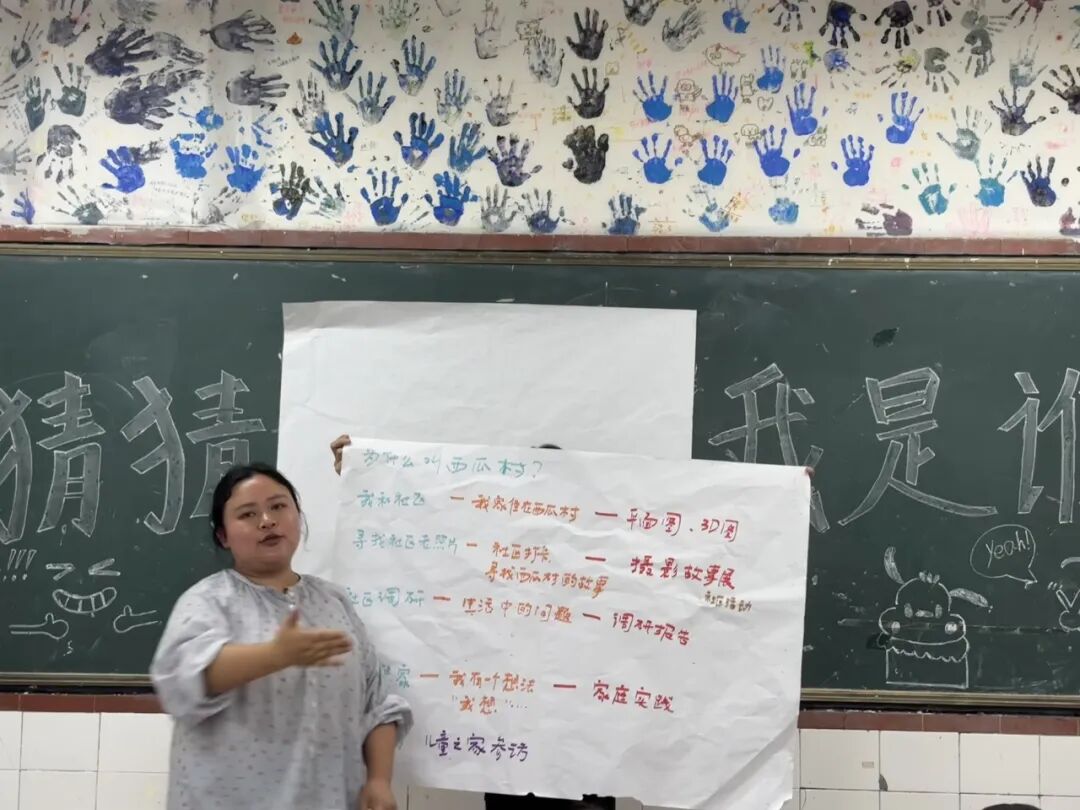 猜猜 我是谁
!!!
yeah!
为什么叫西瓜村？
我和社区 — 我家住在西瓜村 — 平面图、3D图
寻找社区老照片 — 社区打卡 — 摄影故事展
寻找西瓜村的故事
社区活动
社区调研 — 生活中的问题 — 调研报告
家 — 我有一个想法 — 家庭实践
"我想"……
儿童之家参访